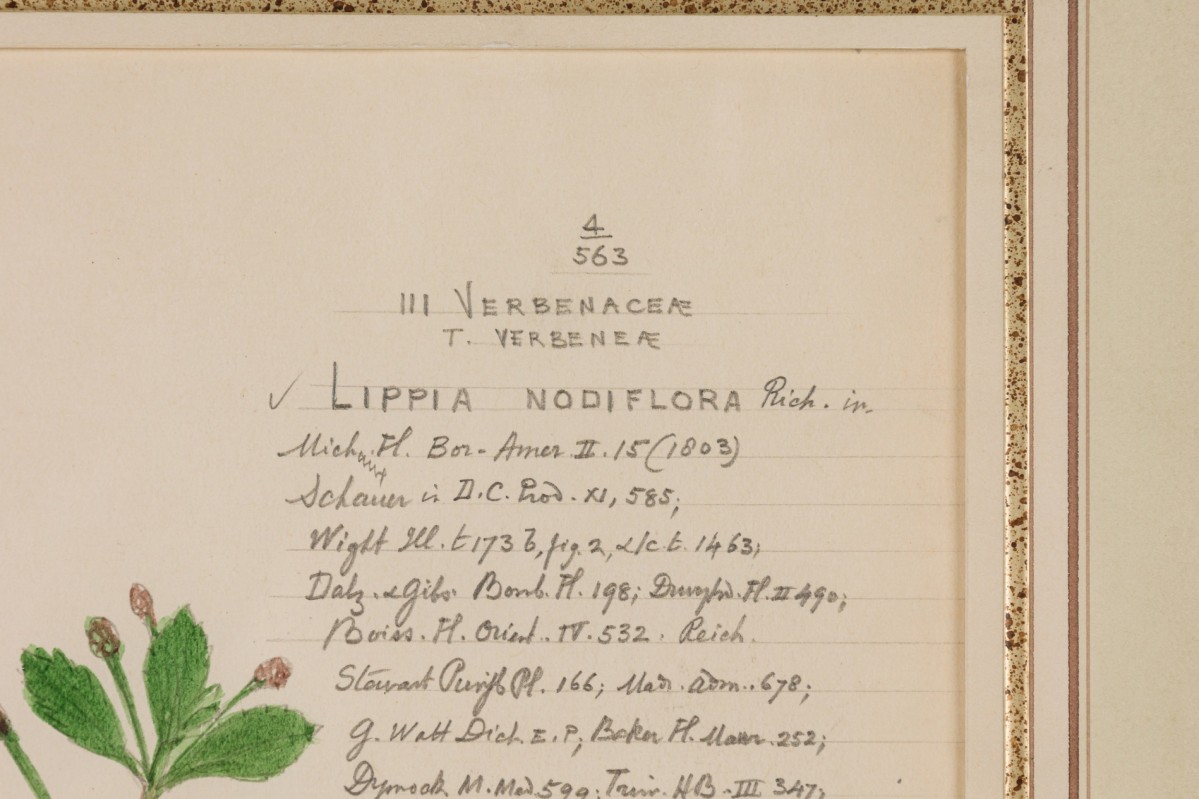 4
563
III VERBENACEÆ
T. VERBENEÆ
✓ LIPPIA NODIFLORA Rich. in
Michaux Fl. Bor-Amer II. 15 (1803)
Schauer in D.C. Prod. XI, 585;
Wight Ill. t 173 b, fig. 2, & Ic t. 1463;
Dalz. & Gibs. Bomb. Fl. 198; Fl. II 490;
Boiss. Fl. Orient. IV. 532. Reich.
Stewart Punjb Pl. 166; Madr. Adm. 678;
G. Watt Dict. E. P; Baker Fl. Maur. 252;
Dymock M. Med 599; Trim. HB - III 347;